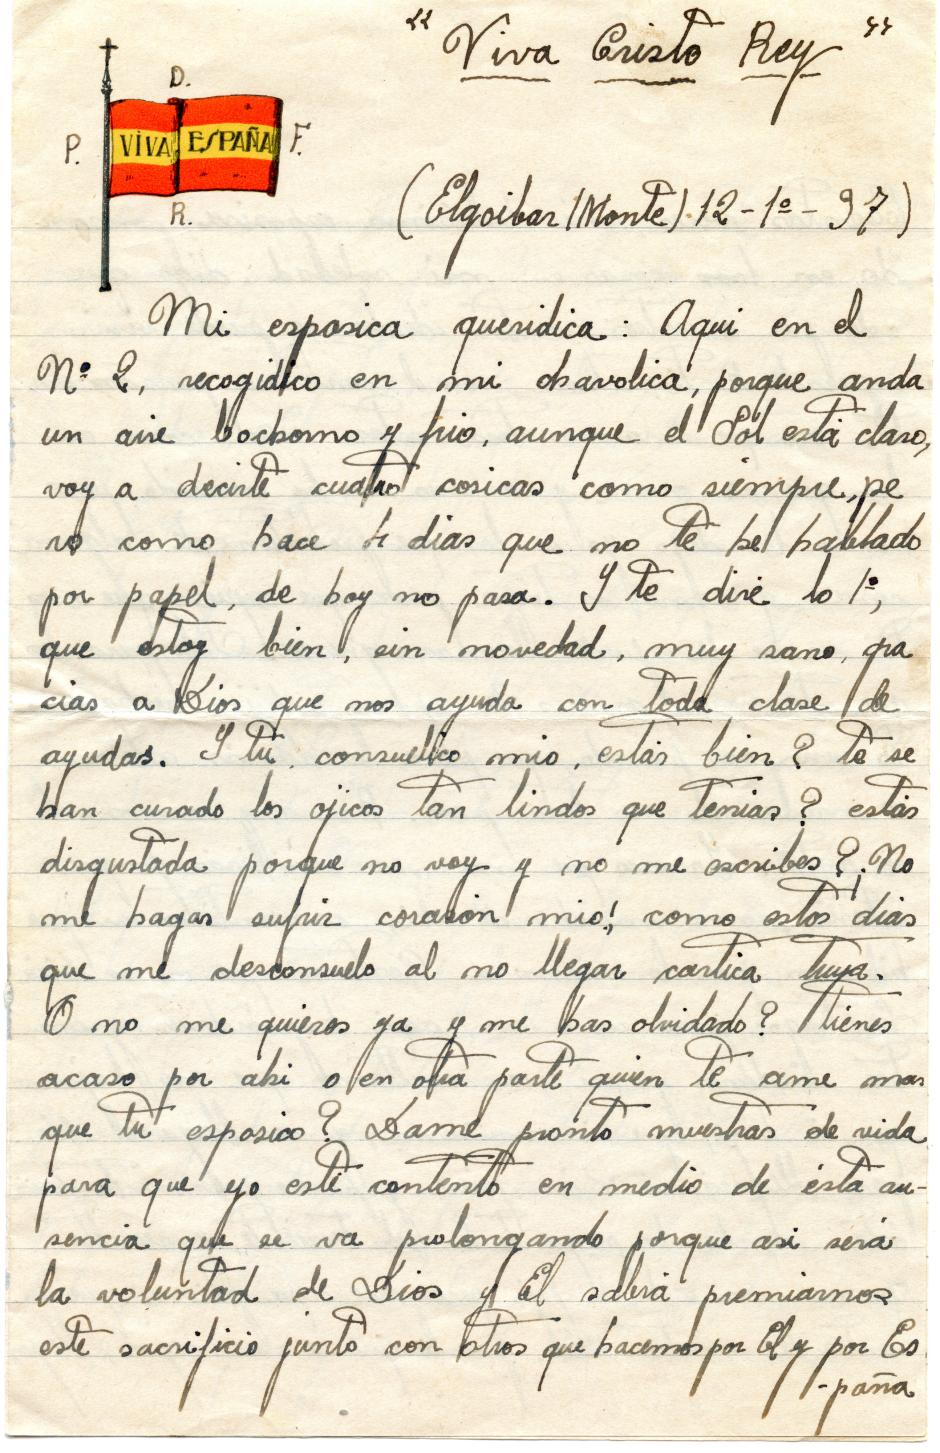 "Viva Cristo Rey"
D.
P. VIVA ESPAÑA F.
R.
(Elgoibar (Monte) 12-1º-37)
Mi esposica queridica: Aqui en el
Nº 2, recogidico en mi chavolica, porque anda
un aire bochorno y frio, aunque el Sol está claro,
voy a decirte cuatro cosicas como siempre, pe
ro como hace 4 dias que no te he hablado
por papel, de hoy no pasa. Y te diré lo 1º,
que estoy bien, sin novedad, muy sano, gra
cias a Dios que nos ayuda con toda clase de
ayudas. Y tú, consuelico mio, estás bien? te se
han curado los ojicos tan lindos que tenias? estás
disgustada porque no voy y no me escribes? ¡No
me hagas sufrir corasón mio! como estos dias
que me desconsuelo al no llegar cartica tuya.
O no me quieres ya y me has olvidado? Tienes
acaso por ahi o en otra parte quien te ame mas
que tú esposico? Dame pronto muestras de vida
para que yo esté contento en medio de ésta au-
sencia que se va prolongando porque asi será
la voluntad de Dios y El sabrá premiarnos
este sacrificio junto con otros que hacemos por El y por Es
-paña